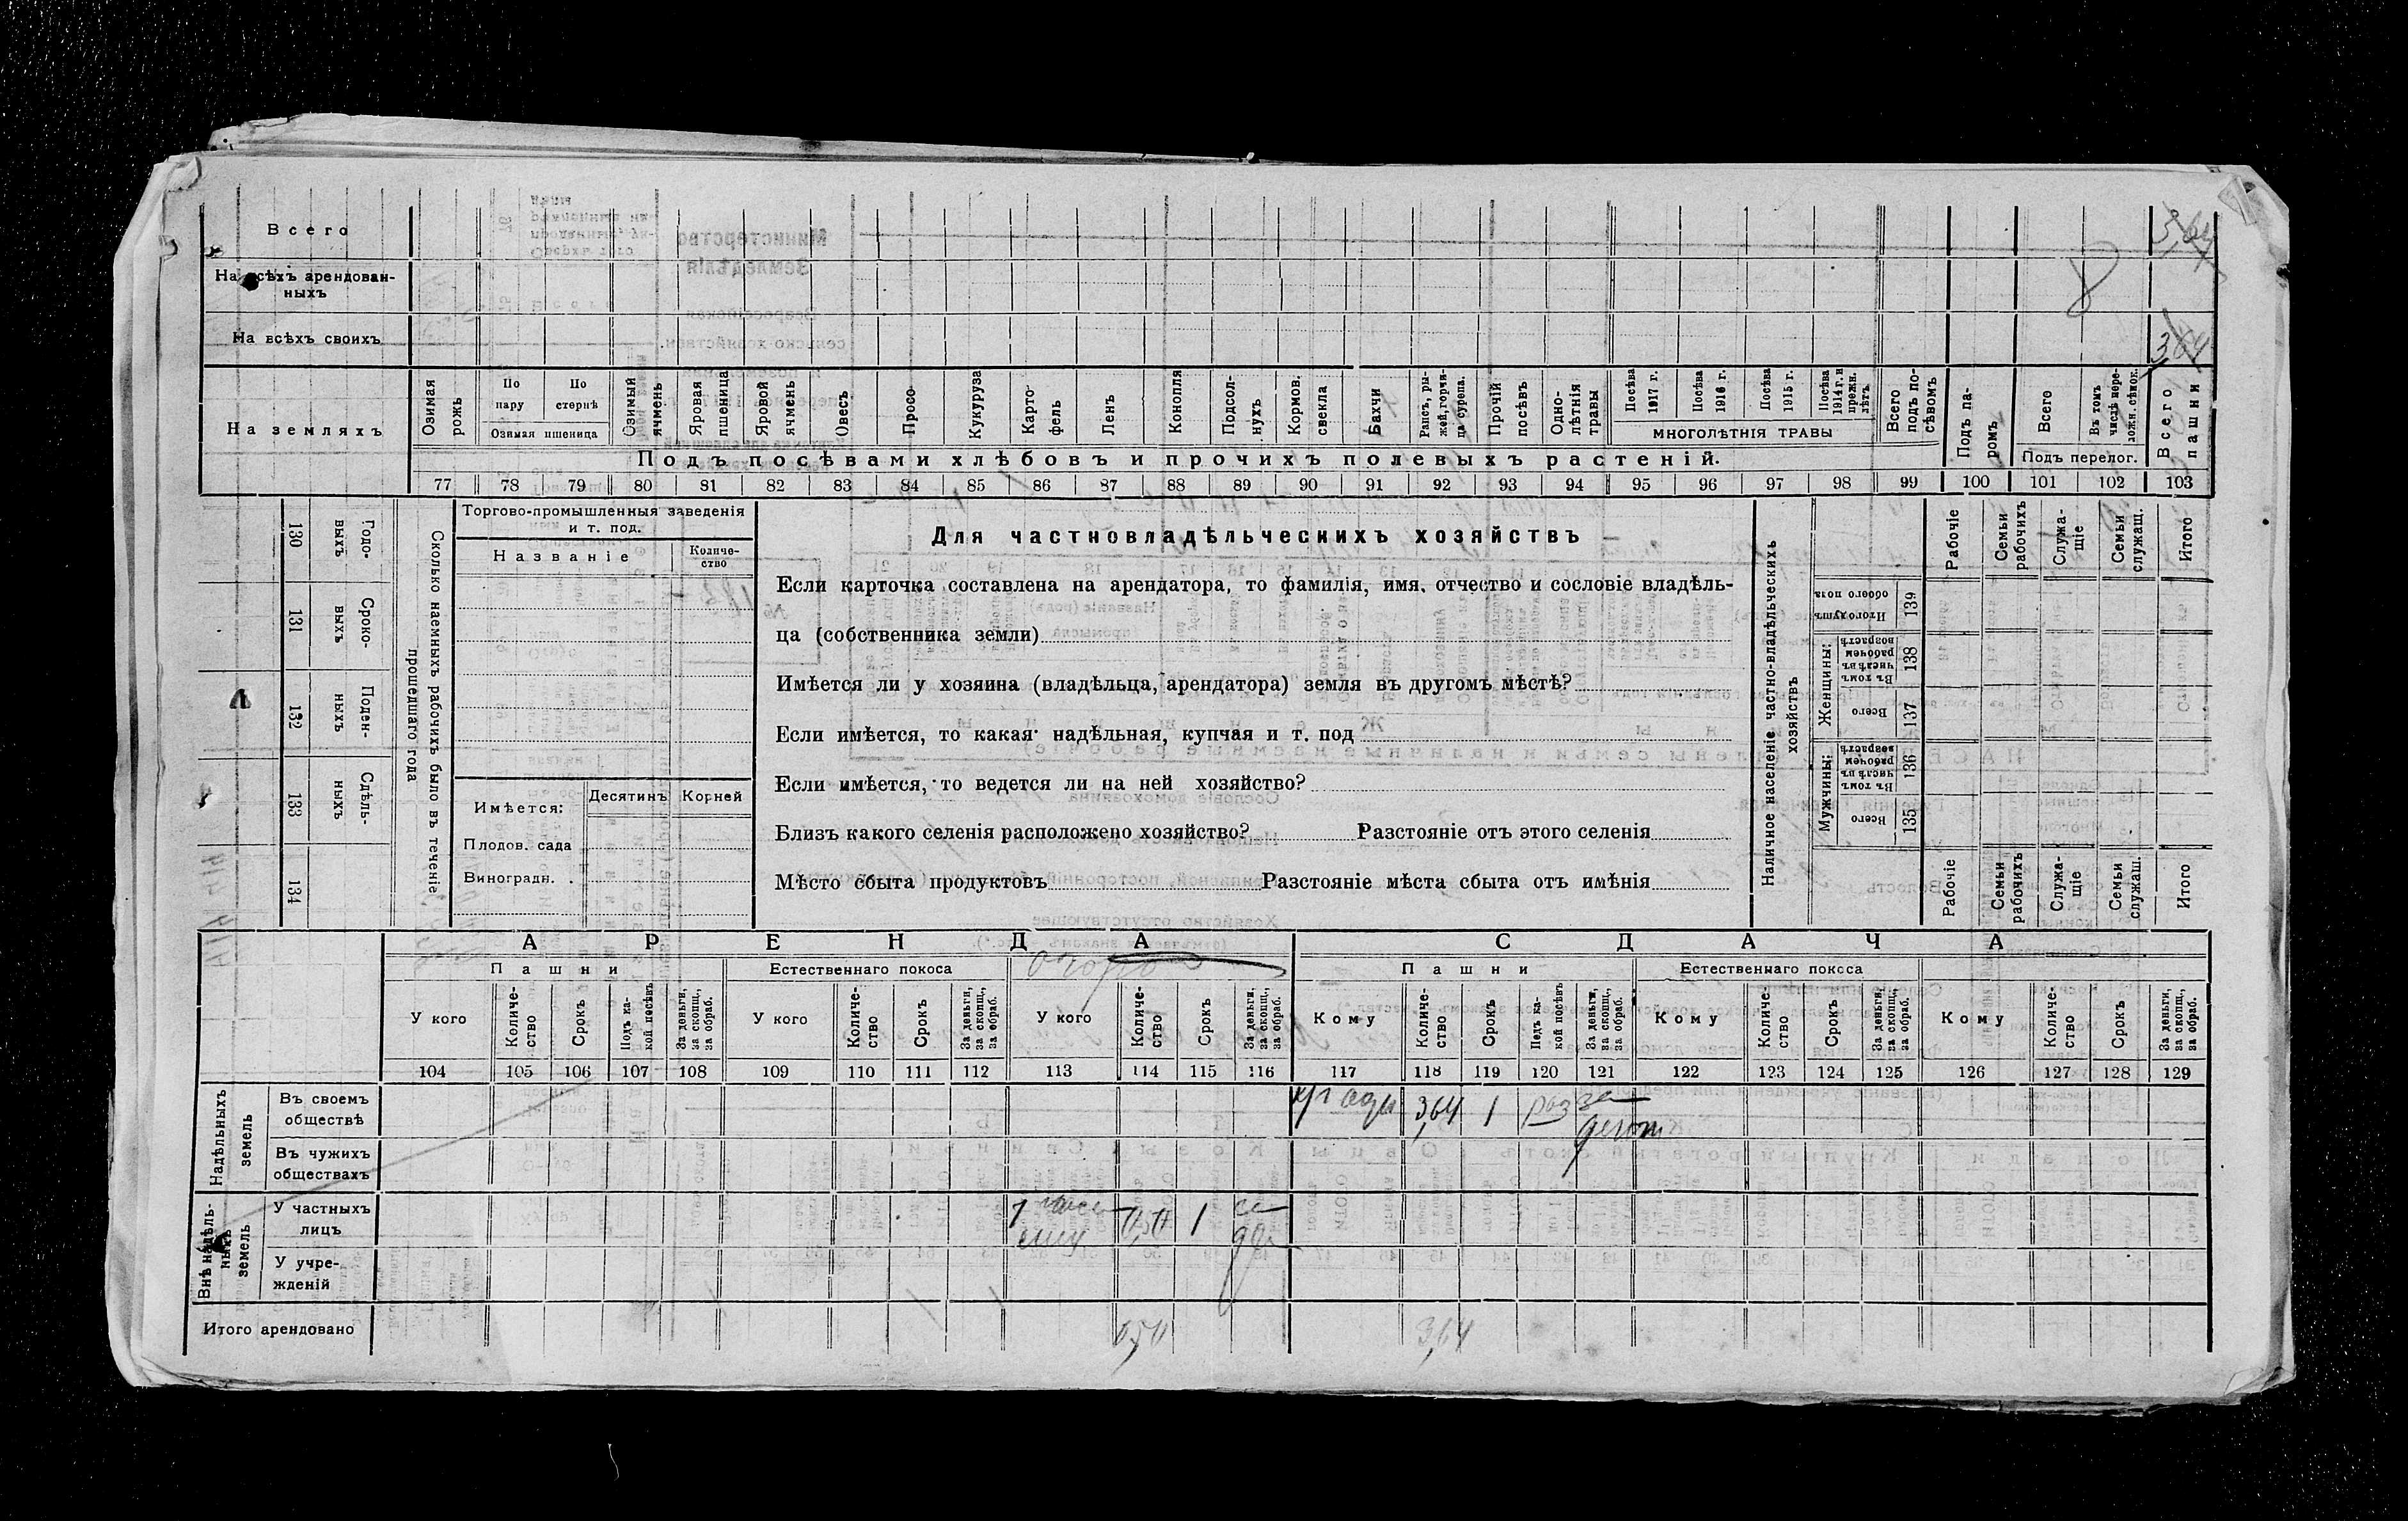 Всего
3,64
На всѣхъ арендован-
ныхъ
8
На всѣхъ своихъ
3,64
На земляхъ
Озимая рожь
По пару
По стернѣ
Озимая пшеница
Озимый ячмень
Яровая пшеница
Яровой ячмень
Овесъ
Просо
Кукуруза
Карто-
фель
Ленъ
Конопля
Подсол-
нухъ
Кормов. свекла
Бахчи
Рапсъ, ры-
жей, горчи-
ца сурепа.
Прочій посѣвъ
Одно-
лѣтнія травы
Посѣва 1917 г.
Посѣва 1916 г.
Посѣва 1915 г.
Посѣва 1914 г. и прежн. лѣтъ
МНОГОЛѢТНІЯ ТРАВЫ
Всего подъ по-
сѣвомъ
Подъ па-
ромъ
Всего
Въ томъ числѣ пере-
ложн. сѣнок.
Подъ перелог.
Всего пашни
Подъ посѣвами хлѣбовъ и прочихъ полевыхъ растеній.
77 78 79 80 81 82 83 84 85 86 87 88 89 90 91 92 93 94 95 96 97 98 99 100 101 102 103
130 Годо-
выхъ
131 Сроко-
выхъ
132 Поден-
ныхъ
133 Сдѣль-
ныхъ
134
Сколько наемныхъ рабочихъ было въ теченіе
прошедшаго года
Торгово-промышленныя заведенія
и т. под.
Названіе
Количе-
ство
Имѣется:
Десятинъ
Корней
Плодов. сада
Виноградн.
Для частновладѣльческихъ хозяйствъ
Если карточка составлена на арендатора, то фамилія, имя, отчество и сословіе владѣль-
ца (собственника земли)
Имѣется ли у хозяина (владѣльца, арендатора) земля въ другомъ мѣстѣ?
Если имѣется, то какая: надѣльная, купчая и т. под
Если имѣется, то ведется ли на ней хозяйство?
Близъ какого селенія расположено хозяйство? Разстояніе отъ этого селенія
Мѣсто сбыта продуктовъ Разстояніе мѣста сбыта отъ имѣнія
Наличное населеніе частно-владѣльческихъ
хозяйствъ
Рабочіе
Семьи рабочихъ
Служа-
щіе
Семьи служащ.
Итого
Итого душъ обоего пола 139
Женщины:
Въ томъ числѣ въ рабочемъ возрастѣ 138
Всего 137
Мужчины:
Въ томъ числѣ въ рабочемъ возрастѣ 136
Всего 135
Рабочіе
Семьи рабочихъ
Служа-
щіе
Семьи служащ.
Итого
АРЕНДА
СДАЧА
Пашни
Естественнаго покоса
Пашни
Естественнаго покоса
У кого
Количе-
ство
Срокъ
Подъ ка-
кой посѣвъ
За деньги, за скопщ., за обраб.
У кого
Количе-
ство
Срокъ
За деньги, за скопщ., за обраб.
У кого
Количе-
ство
Срокъ
За деньги, за скопщ., за обраб.
Кому
Количе-
ство
Срокъ
Подъ ка-
кой посѣвъ
За деньги, за скопщ., за обраб.
Кому
Количе-
ство
Срокъ
За деньги, за скопщ., за обраб.
Кому
Количе-
ство
Срокъ
За деньги, за скопщ., за обраб.
104 105 106 107 108 109 110 111 112 113 114 115 116 117 118 119 120 121 122 123 124 125 126 127 128 129
Надѣльныхъ
земель
Въ своемъ
обществѣ
3,64 1 за
Въ чужихъ
обществахъ
Внѣ надѣль-
ныхъ
земель
У частныхъ
лицъ
0,50 1
У учре-
жденій
Итого арендовано
0,50 3,64